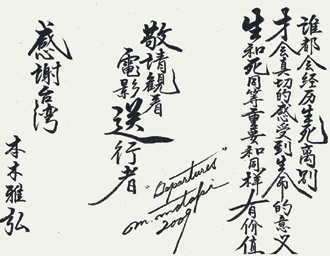 誰都会经历生死离别
才会真切的感受到生命的意义
生和死同等重要和同样有价值
敬請観看
電影送行者
"Departures"
m.motoki
2009
感謝台湾
本木雅弘